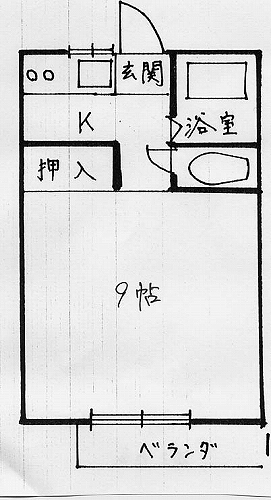 玄関
K
浴室
押入
9帖
ベランダ